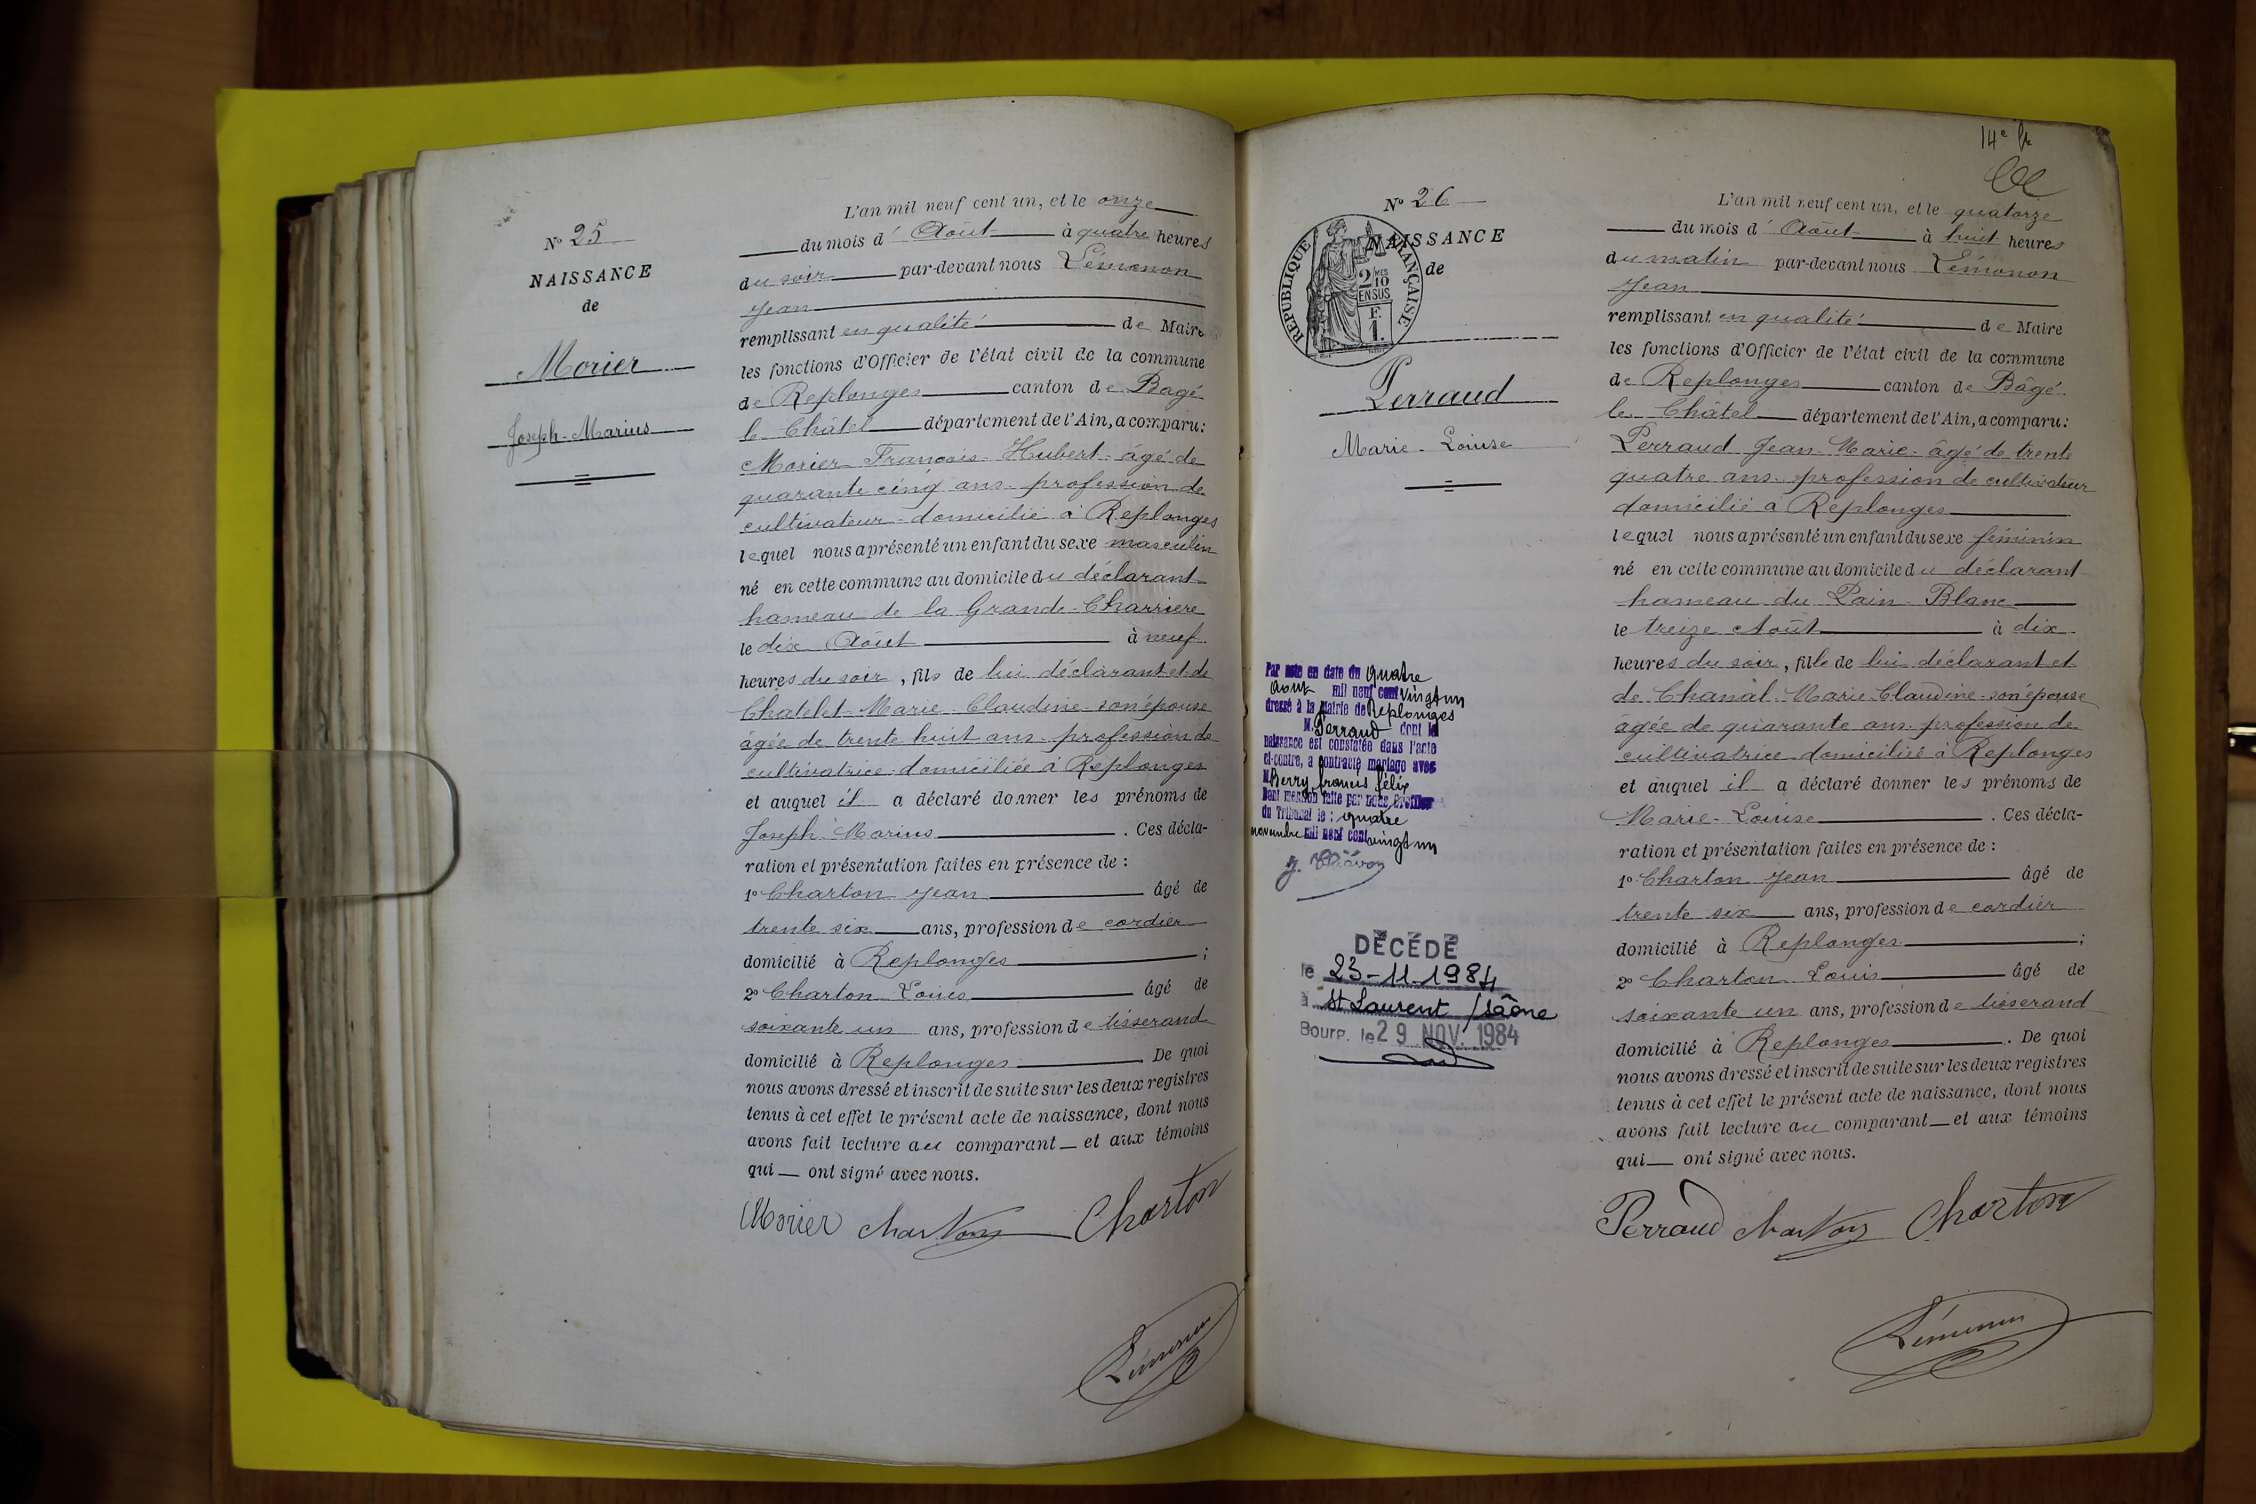 N° 25
NAISSANCE
de
Morier
Joseph-Marius
L'an mil neuf cent un, et le onze
du mois d' Août à quatre heures
du soir par-devant nous Lémonon
Jean
remplissant en qualité de Maire
les fonctions d'Officier de l'état civil de la commune
de Replonges canton de Bagé
le Châtel département de l'Ain, a comparu:
Morier François-Hubert - âgé de
quarante cinq ans - profession de
cultivateur - domicilié à Replonges
lequel nous a présenté un enfant du sexe masculin
né en cette commune au domicile du déclarant
hameau de la Grande-Charriere
le dix Août à neuf
heures du soir, fils de lui déclarant et de
Chatelet-Marie-Claudine son épouse
âgée de trente huit ans - profession de
cultivatrice - domiciliée à Replonges
et auquel il a déclaré donner les prénoms de
Joseph-Marius . Ces décla-
ration et présentation faites en présence de :
1° Charton Jean âgé de
trente six ans, profession de cordier
domicilié à Replonges ;
2° Charton Louis âgé de
soixante un ans, profession de tisserand
domicilié à Replonges De quoi
nous avons dressé et inscrit de suite sur les deux registres
tenus à cet effet le présent acte de naissance, dont nous
avons fait lecture au comparant et aux témoins
qui ont signé avec nous.
Morier Charton Charton
Lémonon
14e
N° 26
NAISSANCE
de
REPUBLIQUE FRANÇAISE
2/10
EN SUS
F.
1.
Perraud
Marie-Louise
Par acte en date du quatre
Août mil neuf cent vingt un
dressé à la Mairie de Replonges
M. Perraud dont la
naissance est constatée dans l'acte
ci-contre, a contracté mariage avec
M. Berry francis félix
Dont mention faite par nous, Greffier
du Tribunal le : quatre
novembre mil neuf cent vingt un
DÉCÉDÉ
le 23-11-1984
à St Laurent /Saône
Bourg, le 29 NOV. 1984
L'an mil neuf cent un, et le quatorze
du mois d' Août à huit heures
du matin par-devant nous Lémonon
Jean
remplissant en qualité de Maire
les fonctions d'Officier de l'état civil de la commune
de Replonges canton de Bâgé
le Châtel département de l'Ain, a comparu:
Perraud Jean-Marie - âgé de trente
quatre ans - profession de cultivateur
domicilié à Replonges
lequel nous a présenté un enfant du sexe féminin
né en cette commune au domicile du déclarant
hameau du Pain-Blanc
le treize Août à dix
heures du soir, fille de lui déclarant et
de Chanal-Marie-Claudine-son épouse
âgée de quarante ans - profession de
cultivatrice domiciliée à Replonges
et auquel il a déclaré donner les prénoms de
Marie-Louise . Ces décla-
ration et présentation faites en présence de :
1° Charton Jean âgé de
trente six ans, profession de cordier
domicilié à Replonges ;
2° Charton Louis âgé de
soixante un ans, profession de tisserand
domicilié à Replonges . De quoi
nous avons dressé et inscrit de suite sur les deux registres
tenus à cet effet le présent acte de naissance, dont nous
avons fait lecture au comparant et aux témoins
qui ont signé avec nous.
Perraud Charton Charton
Lémonon